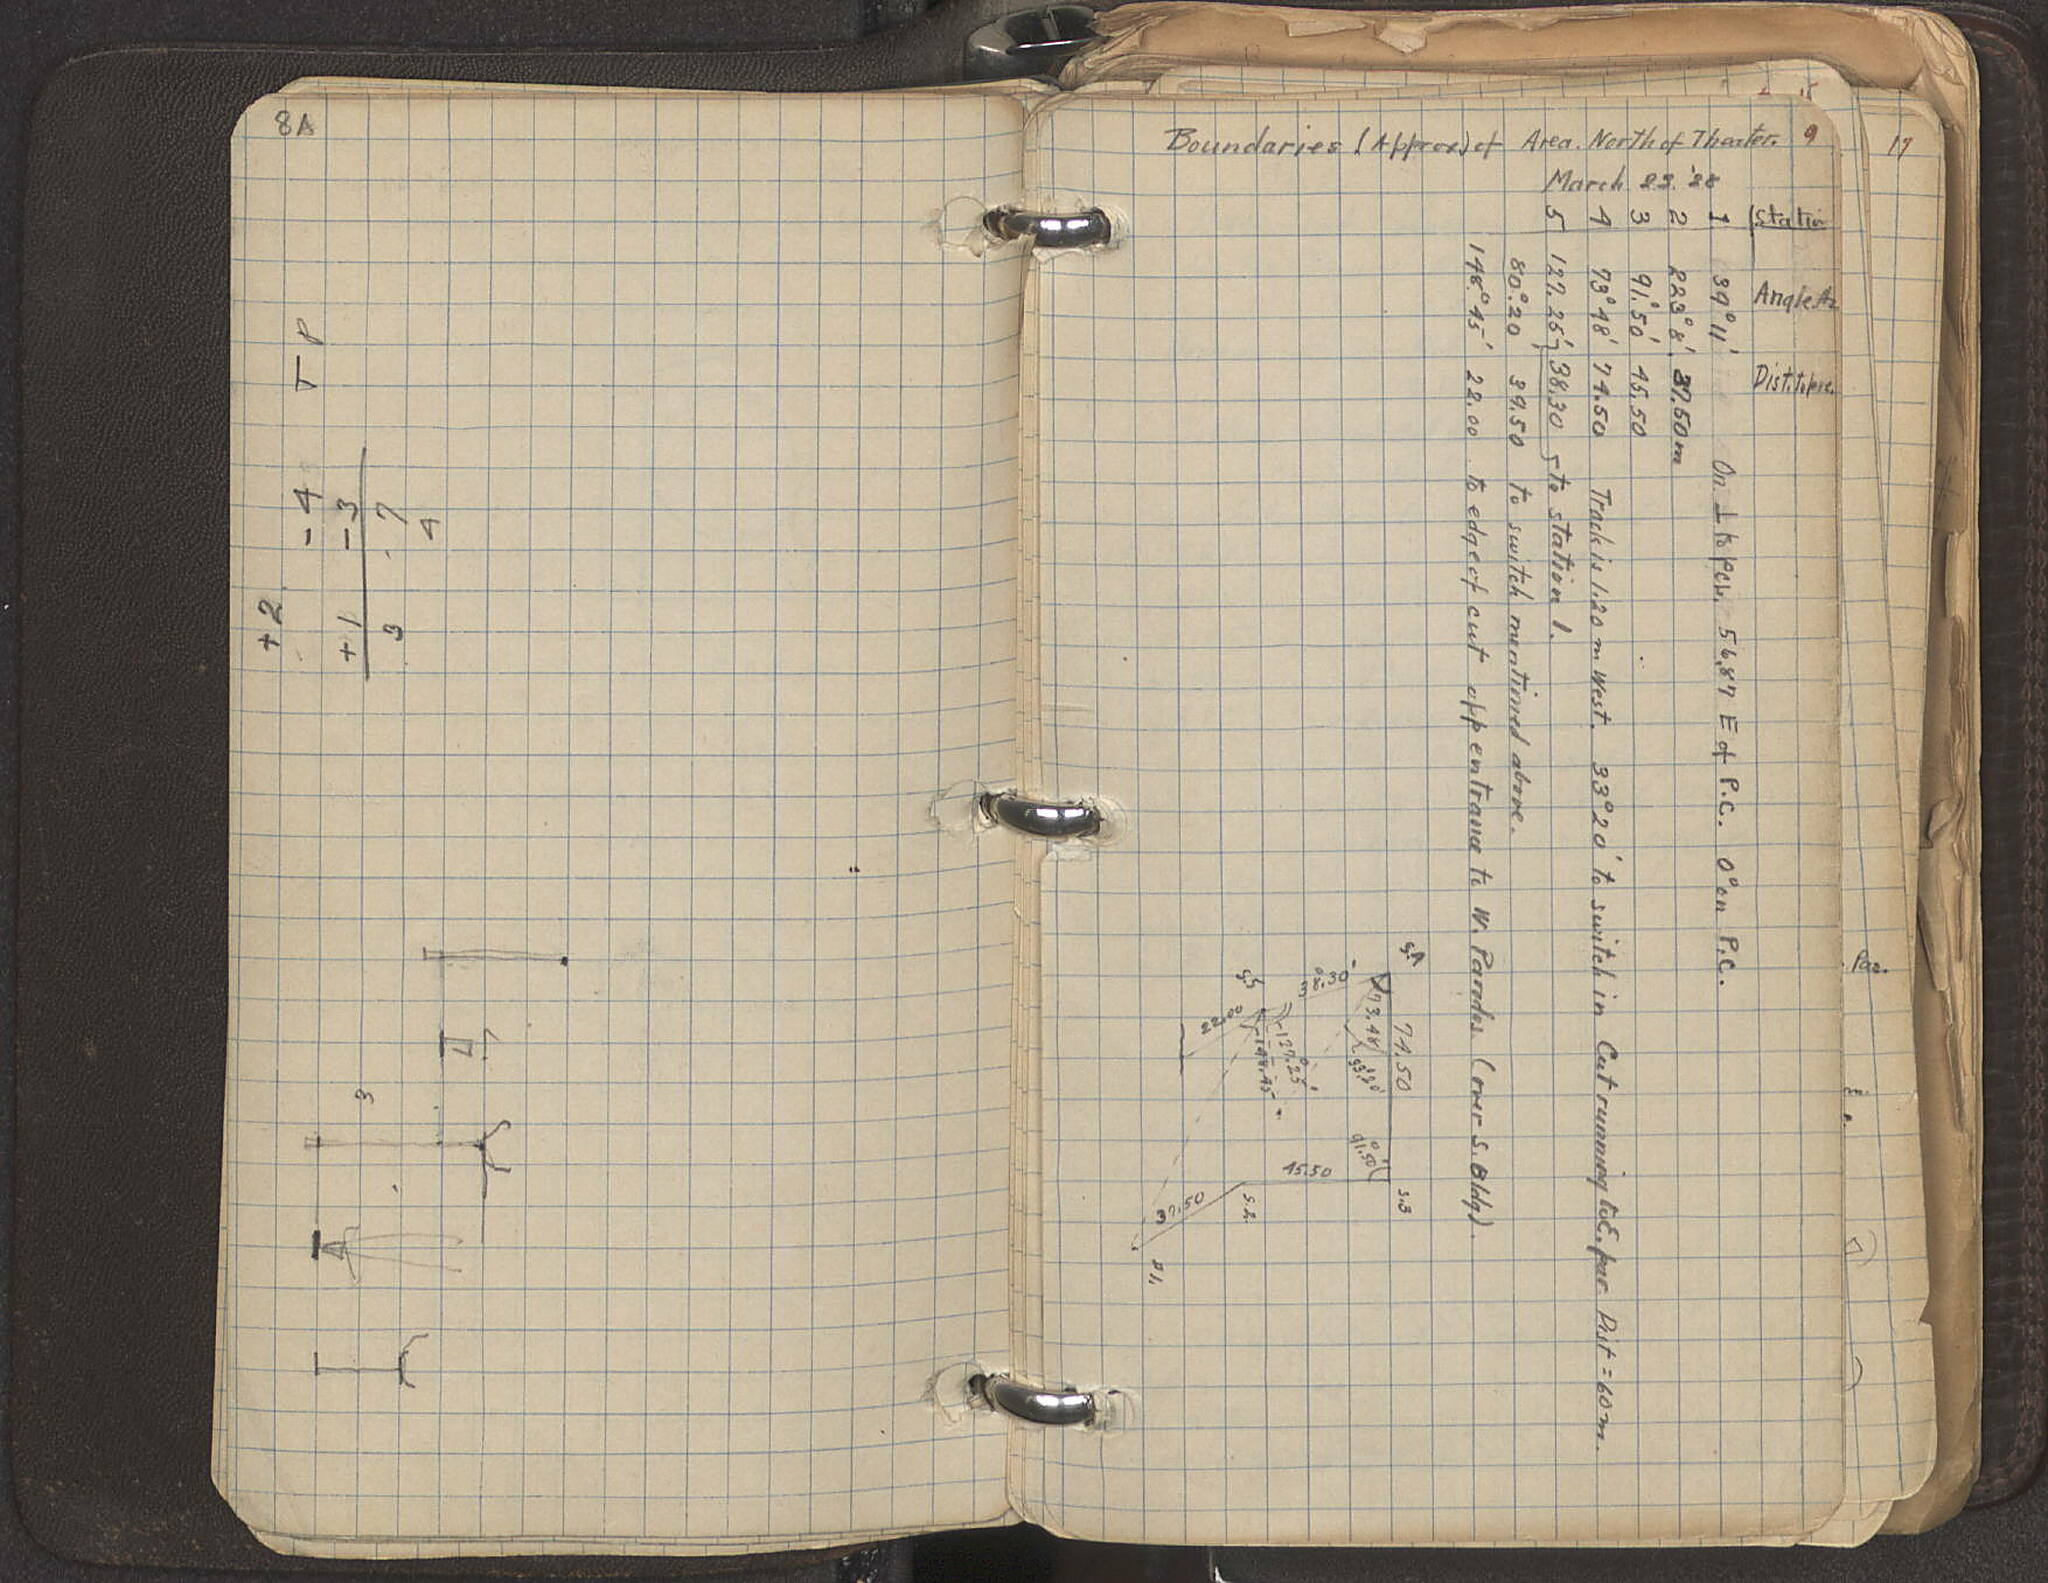 8A
T P
+2
-4
-3 +1
7 3
4
3
Boundaries (Approx) of Area. North of Theater. 9
March 23. '28
Station Angle Az Dist. to pre.
1 39° 11' On ⊥ to per. 56.87 E of P.C. 0° on P.C.
2 223° 8' 37.50 m
3 91° 50' 45.50
4 73° 48' 74.50 Track is 1.20 m West. 33° 20' to switch in Cut running to E. par Dist = 60 m.
5 127. 25' 38.30 to station 1.
80° 20 39.50 to switch mentioned above.
148° 45' 22.00 to edge of cut opp entrance to W. Parodos (over S. Bldg).
74.50
S.3
73.48'
91.50'
38.30
45.50
127° 25'
148.45
22.00
S.2.
37.50
17
Par.